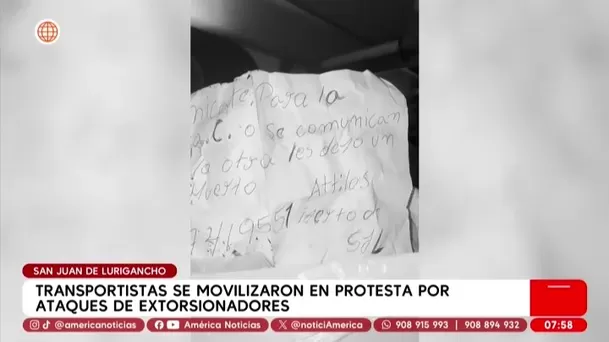 nicate. Para la
.C. o se comunican
la otra les dejo un
Muerto Attilos
SAN JUAN DE LURIGANCHO
TRANSPORTISTAS SE MOVILIZARON EN PROTESTA POR
ATAQUES DE EXTORSIONADORES
@americanoticias América Noticias @noticiAmerica 908 915 993 908 894 932
07:58